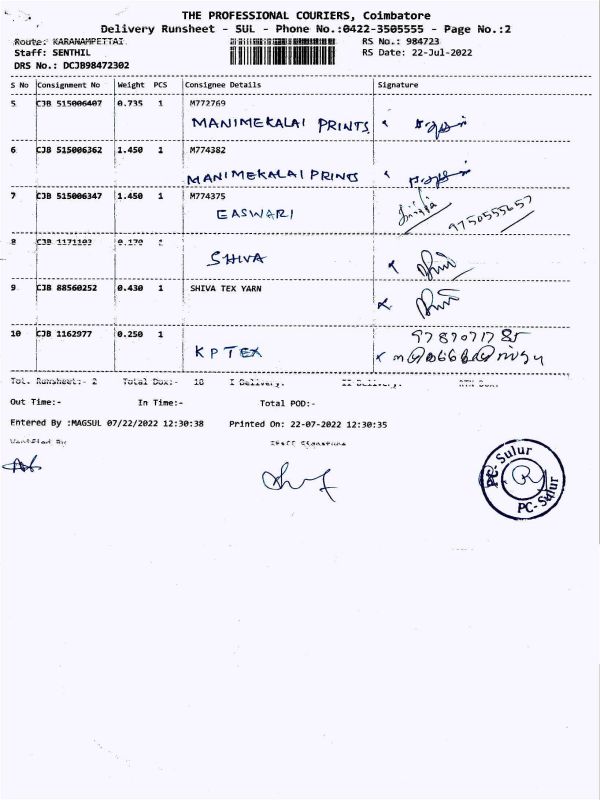 THE PROFESSIONAL COURIERS, Coimbatore
Delivery Runsheet - SUL - Phone No.:0422-3505555 - Page No.:2
Route: KARANAMPETTAI
RS No.: 984723
Staff: SENTHIL
RS Date: 22-Jul-2022
DRS No.: DCJB98472302
S No Consignment No Weight PCS Consignee Details Signature
5 CJB 515006407 0.735 1 M772769
MANIMEKALAI PRINTS
6 CJB 515006362 1.450 1 M774382
MANIMEKALAI PRINTS
7 CJB 515006347 1.450 1 M774375
EASWARI 9750555657
8 CJB 1171103 0.170
SHIVA
9 CJB 88560252 0.430 1 SHIVA TEX YARN
10 CJB 1162977 0.250 1
KPTEX
Tot. Runsheet:- 2 Total Dox:- 10 I Delivery. II Delivery. RTN Dox.
Out Time:- In Time:- Total POD:-
Entered By :MAGSUL 07/22/2022 12:30:38 Printed On: 22-07-2022 12:30:35
Verified By Staff Signature
PC-Sulur
R
PC-Sulur